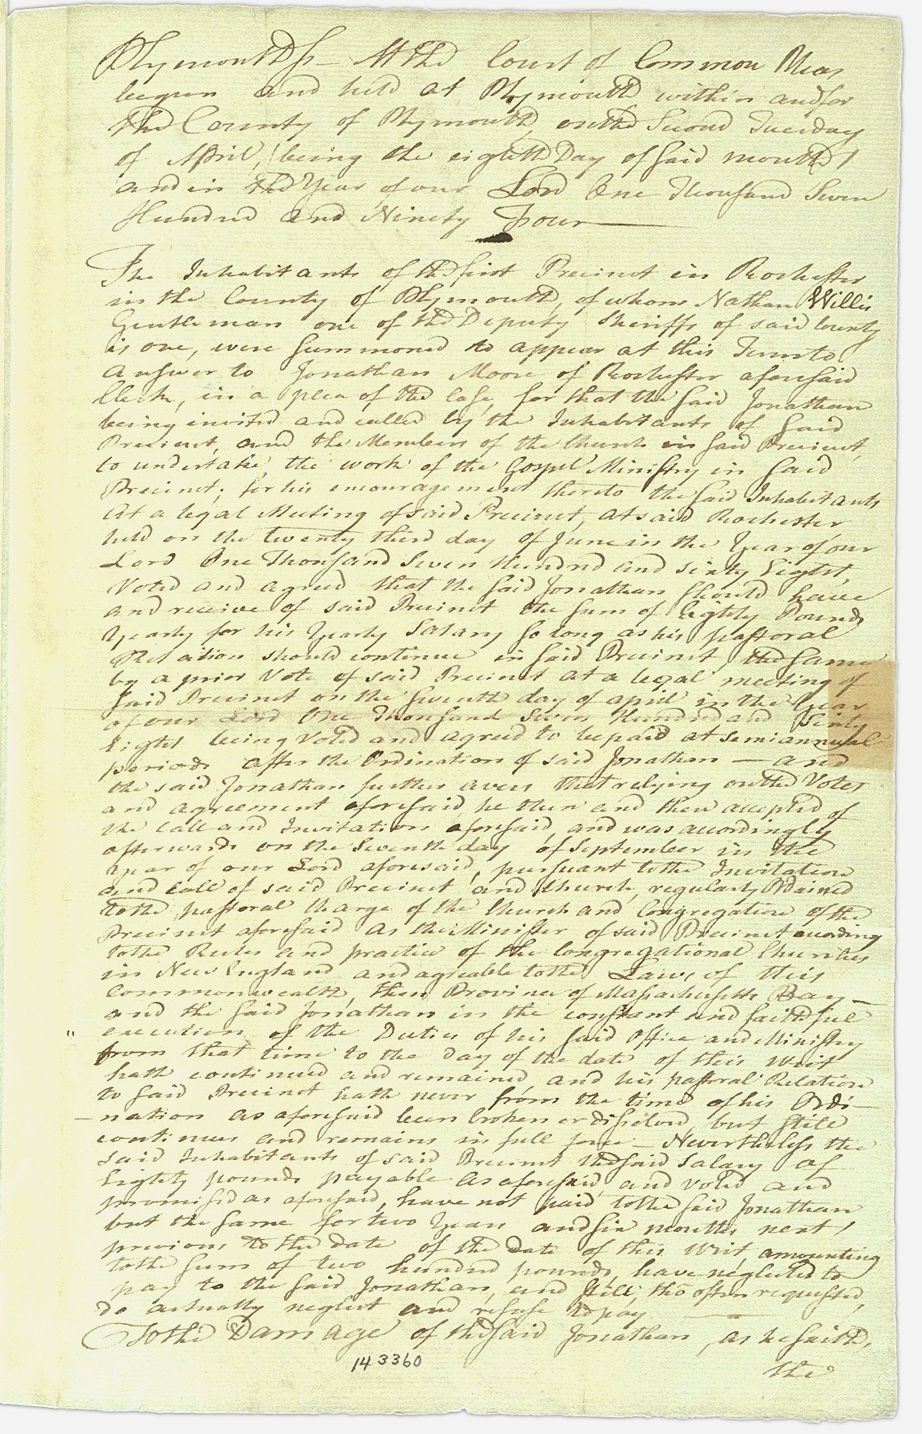 Plymouth ss — At the Court of Common Pleas
begun and held at Plymouth within and for
the County of Plymouth, on the Second Tuesday
of April, (being the eighth Day of said month)
and in the Year of our Lord One Thousand Seven
Hundred and Ninety Four
The Inhabitants of the first Precinct in Rochester
in the County of Plymouth, of whom Nathan Willis
Gentleman one of the Deputy Sheriffs of said County
is one, were Summoned to appear at this Term to
answer to Jonathan Moore of Rochester aforesaid
Clerk, in a plea of the Case, for that the said Jonathan
being invited and called by the Inhabitants of said
Precinct, and the Members of the Church in said Precinct,
to undertake the work of the Gospel Ministry in said
Precinct; for his encouragement thereto the said Inhabitants
At a legal Meeting of said Precinct, at said Rochester
held on the twenty third day of June in the Year of our
Lord One Thousand Seven Hundred and Sixty Eight,
Voted and agreed that the said Jonathan should have
and receive of said Precinct the Sum of Eighty Pounds
Yearly for his Yearly Salary so long as his pastoral
Relation should continue in said Precinct, the same
by a prior Vote of said Precinct at a legal meeting of
said Precinct on the seventh day of april in the Year
of our Lord One Thousand Seven Hundred and Sixty
Eight being Voted and agreed to be paid at semiannual
periods after the Ordination of said Jonathan — and
the said Jonathan further avers that relying on the Votes
and agreement aforesaid he then and there accepted of
the Call and Invitation aforesaid, and was accordingly
afterwards on the seventh day of September in the
Year of our Lord aforesaid, pursuant to the Invitation
and Call of said Precinct and Church, regularly Ordained
to the pastoral Charge of the Church and Congregation of the
Precinct aforesaid as the Minister of said Precinct according
to the Rules and practice of the Congregational Churches
in New England and agreable to the Laws of this
Commonwealth, then Province of Massachusetts Bay —
and the said Jonathan in the constant and faithful
execution of the Duties of his said Office and Ministry
from that time to the day of the date of this Writ
hath continued and remained, and his pastoral Relation
to said Precinct hath never from the time of his Ordi-
-nation as aforesaid been broken or dissolved, but still
continues and remains in full force — Nevertheless the
said Inhabitants of said Precinct the said Salary of
Eighty pounds payable as aforesaid and voted and
promised as aforesaid, have not paid to the said Jonathan
but the same for two Years and six months next
previous to the date of the Date of this Writ, amounting
to the Sum of two hundred pounds, have neglected to
pay to the said Jonathan, and still, tho often requested,
do actually neglect and refuse to pay
To the Damage of the said Jonathan, as he saith,
the
143360